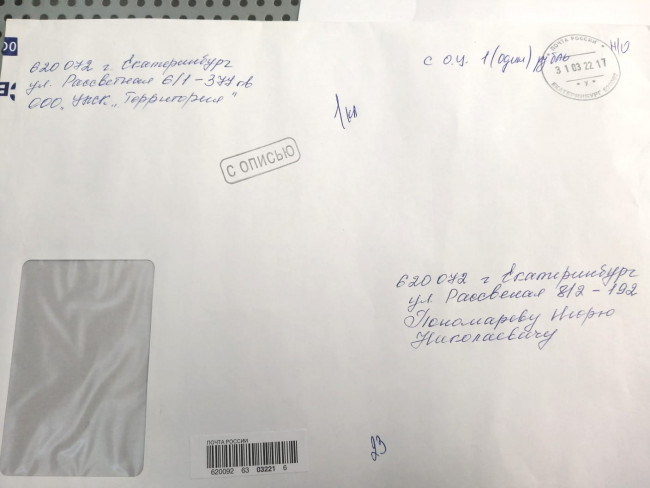 620072 г Екатеринбург
ул. Рассветная 6/1-377 оф
ООО, УЖСК „Территория"
с О.Ц. 1 (один) рубль
Н/О
ПОЧТА РОССИИ
31 03 22 17
ЕКАТЕРИНБУРГ
1 кл
С ОПИСЬЮ
620072 г Екатеринбург
ул Рассвеная 8/2-192
Пономареву Игорю
Николаевичу
ПОЧТА РОССИИ
620092 63 03221 6
23